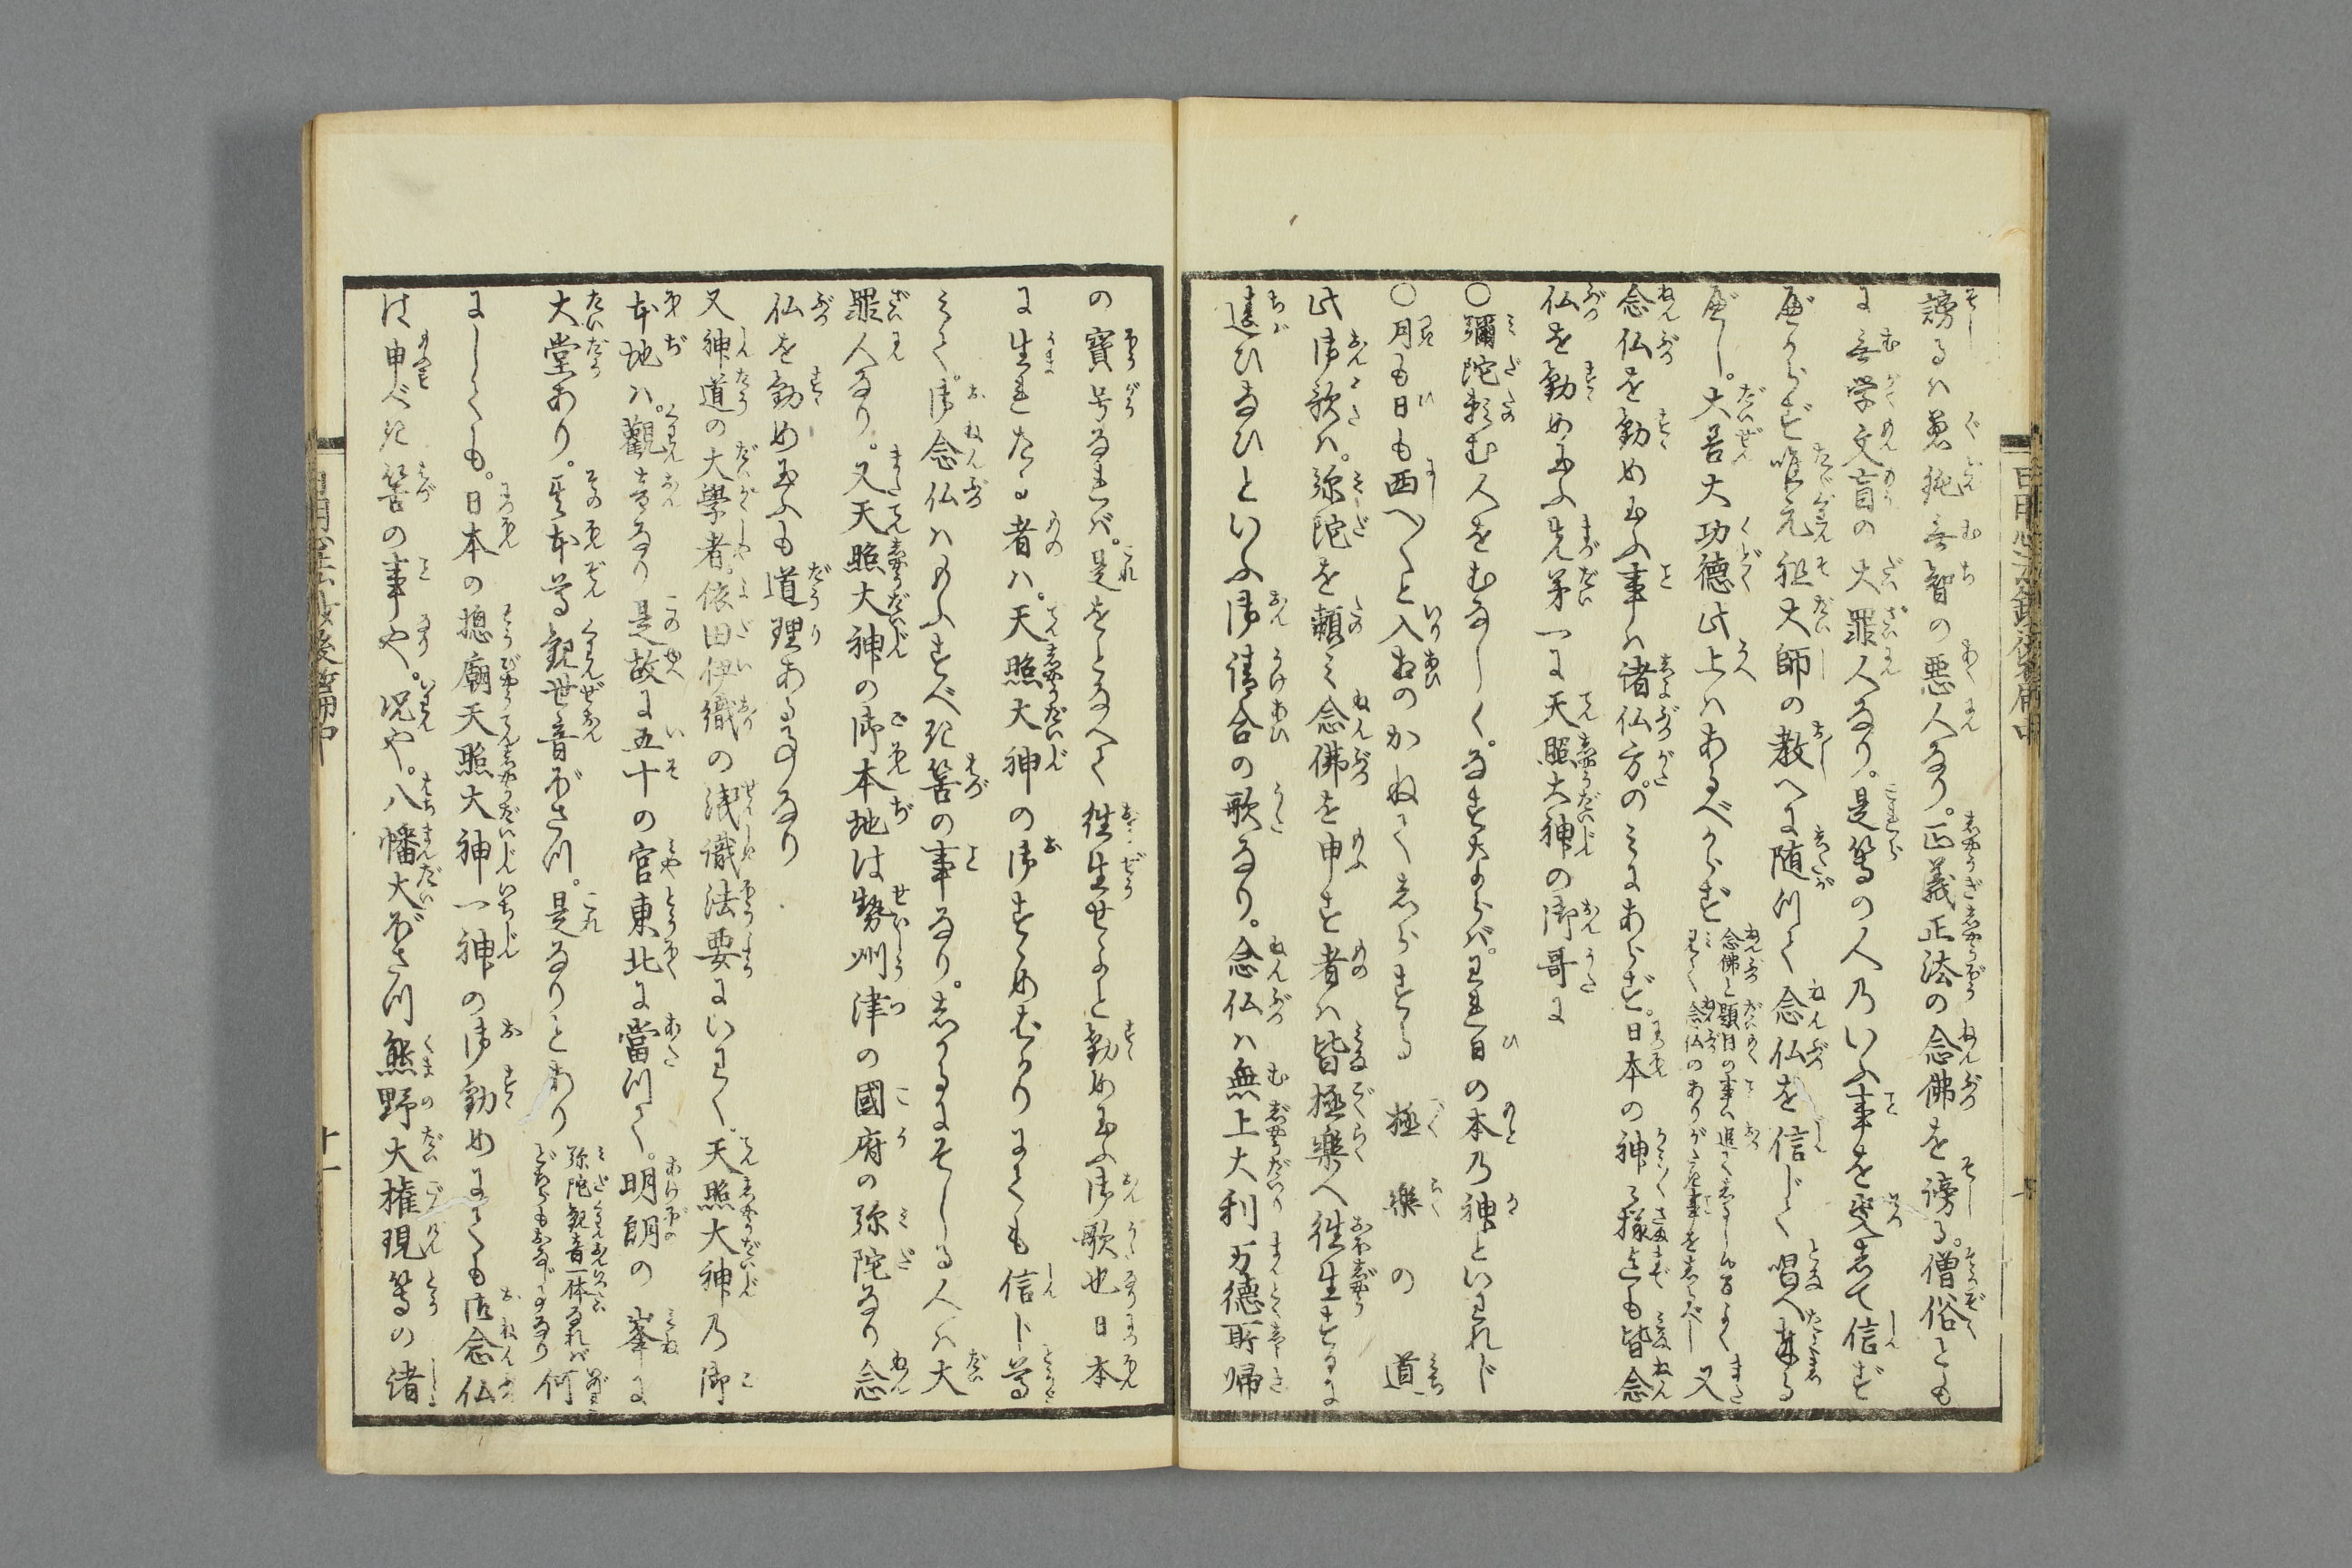 謗るハ愚鈍無智の悪人なり。正義正法の念佛を謗る。僧俗とも
に無学文盲の大罪人なり。是等の人乃いふ事を受て信ず
べからず唯元祖大師の教へに随つて念仏を信じて唱へ奉る
べし。大善大功徳此上ハあるべからず
念佛と題目の事ハ追て
念仏のありがたき事をしるべし又
念仏を勧め玉ふ事ハ諸仏方。のミにあらず。日本の神々様迄も皆念
仏を勧め玉ふ先第一に天照大神の御哥に
〇彌陀頼む人をむなしく。なすならバ。われ日の本乃神といわれじ
〇月も日も西へ〳〵と入おのかねてしらする極樂の道
此御歌ハ。弥陀を頼ミ念佛を申す者ハ皆極樂へ徃生するに
違ひなひといふ御請合の歌なり。念仏ハ無上大利万徳所帰
の寶号なれバ。是をとなへて徃生せよと勧め玉ふ御歌也日本
に生れたる者ハ。天照大神の御すゝめばかりにても信ト尊
ミて。御念仏ハもふすべき筈の事なり。しかるにそしる人ハ大
罪人なり。又天照大神の御本地は勢州津の國府の弥陀なり念
仏を勧め玉ふも道理ある事なり
又神道の大學者。依田伊織の浅識法要にいわく。天照大神乃御
本地ハ。觀音なり是故に五十の宮東北に當つて。明朗の峯に
大堂あり。其本尊観世音ぼさつ。是なりとあり
弥陀観音一体なれバ何
どちらもおなじ事なり
にしても。日本の摠廟天照大神一神の御勧めにても御念仏
は申べき筈の事や。况や。八幡大ぼさつ熊野大権現等の諸
十一